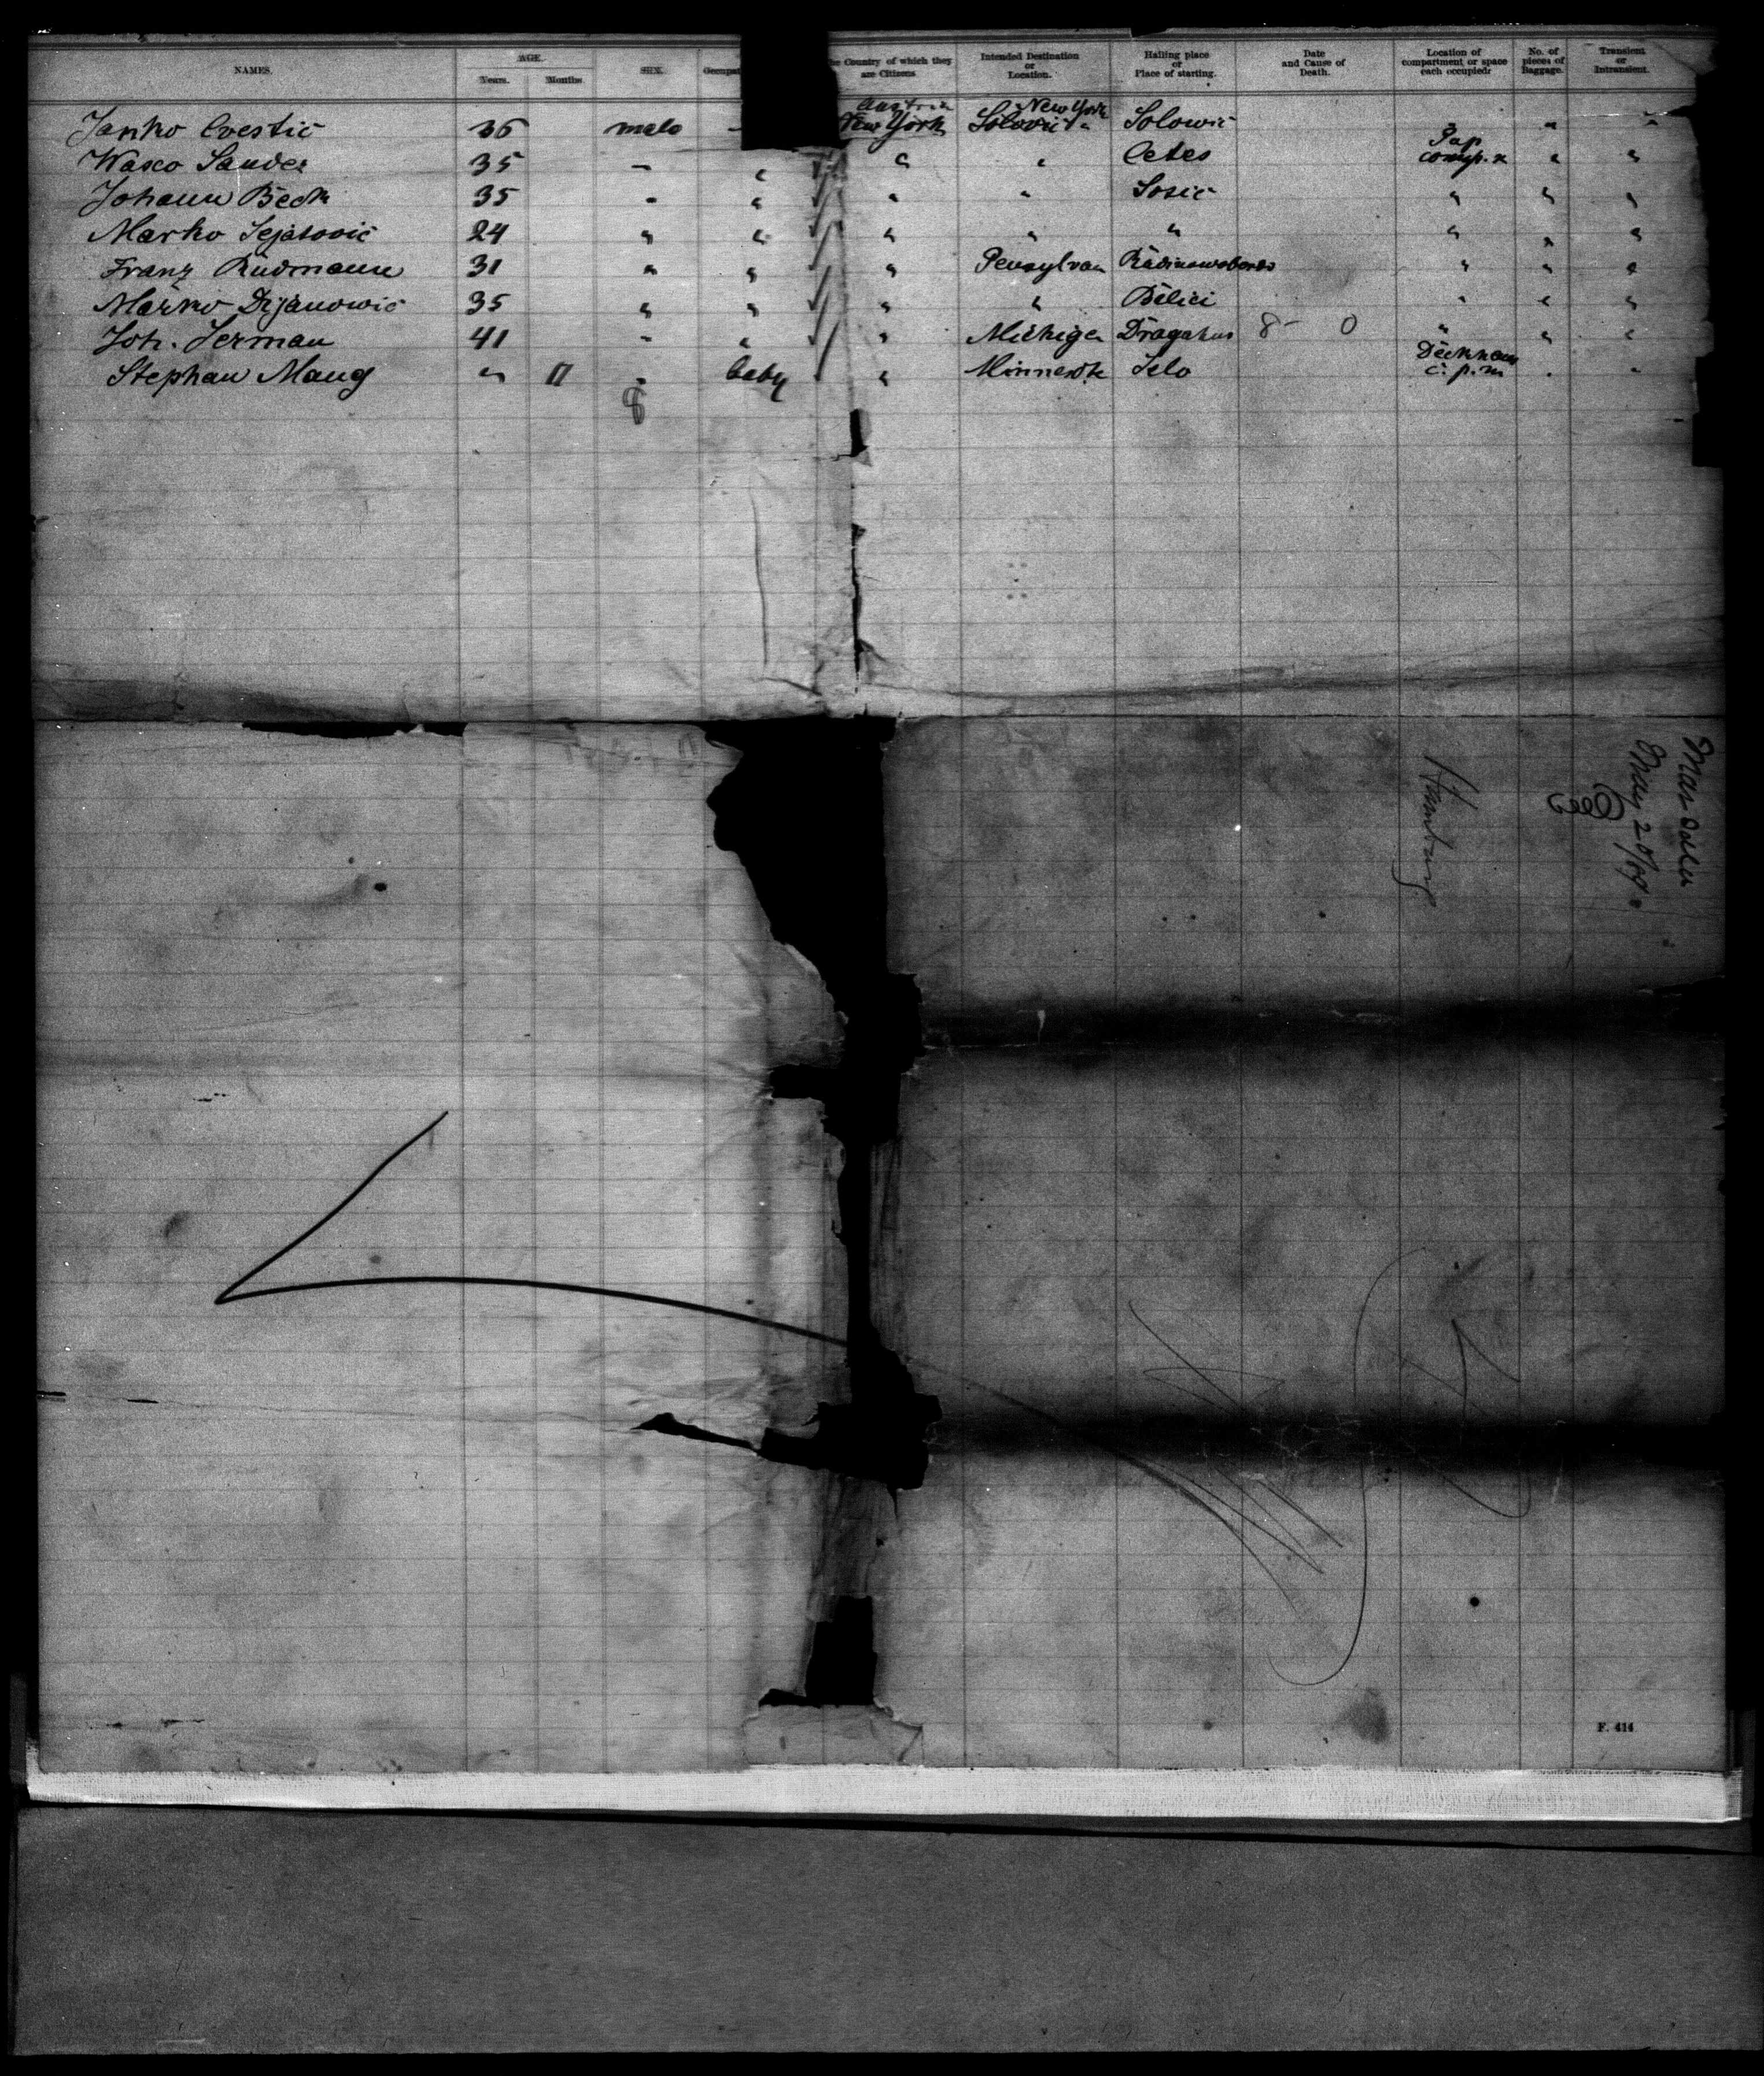 NAMES. AGE. Years. Months. SEX. Occupat e Country of which they are Citizens Intended Destination or Location. Hailing place or Place of starting. Date and Cause of Death. Location of compartment or space each occupied: No. of pieces of Baggage. Transient or Intransient.
Austria New York
Janko Cvestic 36 male New York Solovic " Solowic " "
Wasco Sander 35 " " " " Cetes comp. " "
Johann Beck 35 " " " " Sosic " " "
Marko 24 " " " " " " " "
Franz Rudmann 31 " " " Pensylvan " " "
Marko Dijanowic 35 " " " " Belici " " "
Joh. Jerman 41 " " " Michigan Dragatus 8- 0 " " "
Stephan Maug " 11 " baby " Minnesota Selo " "
8
Hamburg
May 20/89
F. 414